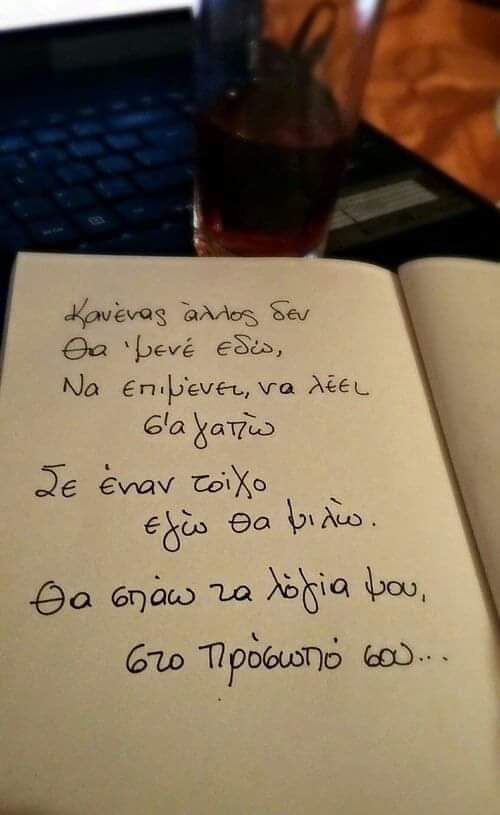 Κανένας άλλος δεν
θα 'μενέ εδώ,
Να επιμένει, να λέει
σ'αγαπώ
Σε έναν τοίχο
εγώ θα μιλώ.
Θα σπάω τα λόγια μου,
στο πρόσωπό σου...